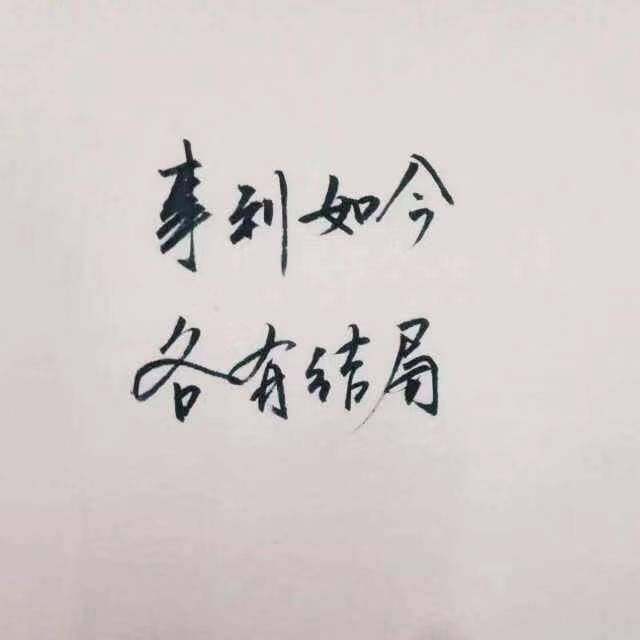 事到如今
各有结局